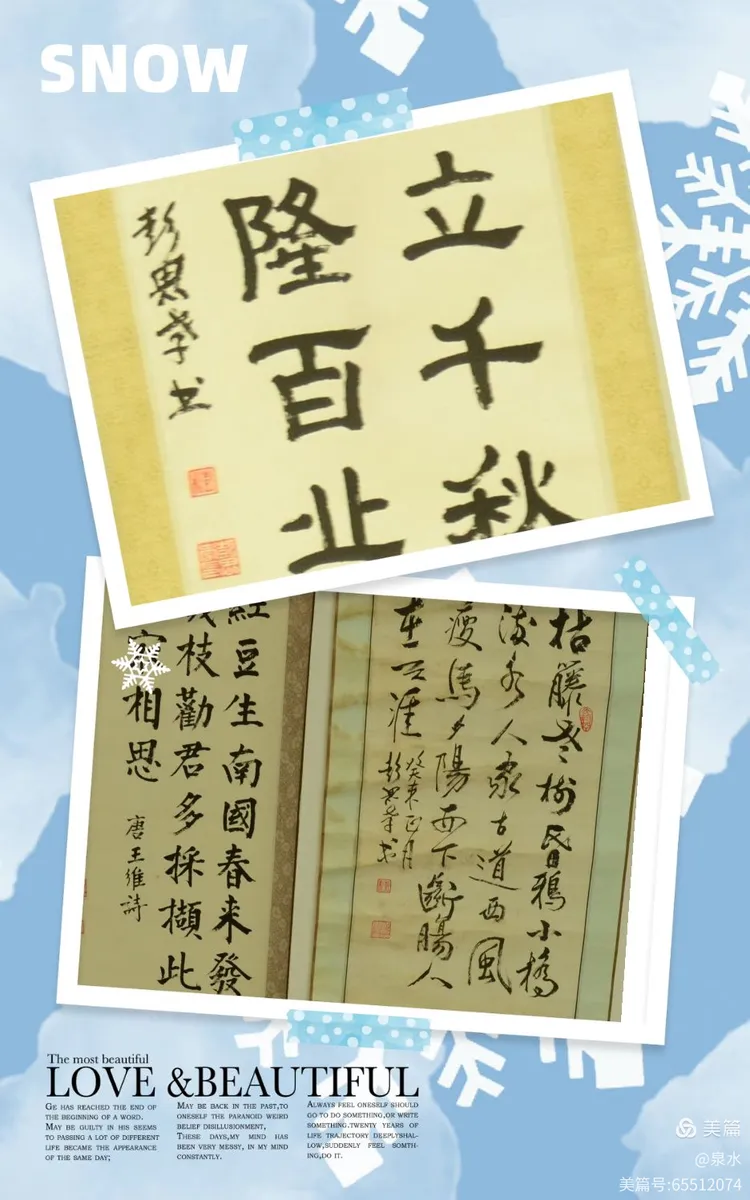 SNOW
立千秋
隆百业
彭思孝书
枯藤老樹昏鴉小橋
流水人家古道西風
瘦馬夕陽西下斷腸人
在天涯
癸未正月
彭思孝书
紅豆生南國春来發
枝勸君多採擷此
相思
唐王維詩
The most beautiful
LOVE &BEAUTIFUL
GE HAS REACHED THE END OF
THE BEGINNING OF A WORD.
MAY BE GUILTY IN HIS SEEMS
TO PASSING A LOT OF DIFFERENT
LIFE BECAME THE APPEARANCE
OF THE SAME DAY;
MAY BE BACK IN THE PAST,TO
ONESELF THE PARANOID WEIRD
BELIEF DISILLUSIONMENT,
THESE DAYS,MY MIND HAS
BEEN VERY MESSY, IN MY MIND
CONSTANTLY.
ALWAYS FEEL ONESELF SHOULD
GO TO DO SOMETHING,OR WRITE
SOMETHING.TWENTY YEARS OF
LIFE TRAJECTORY DEEPLYSHAL-
LOW,SUDDENLY FEEL SOMTH-
ING,DO IT.
美篇
@泉水
美篇号:65512074